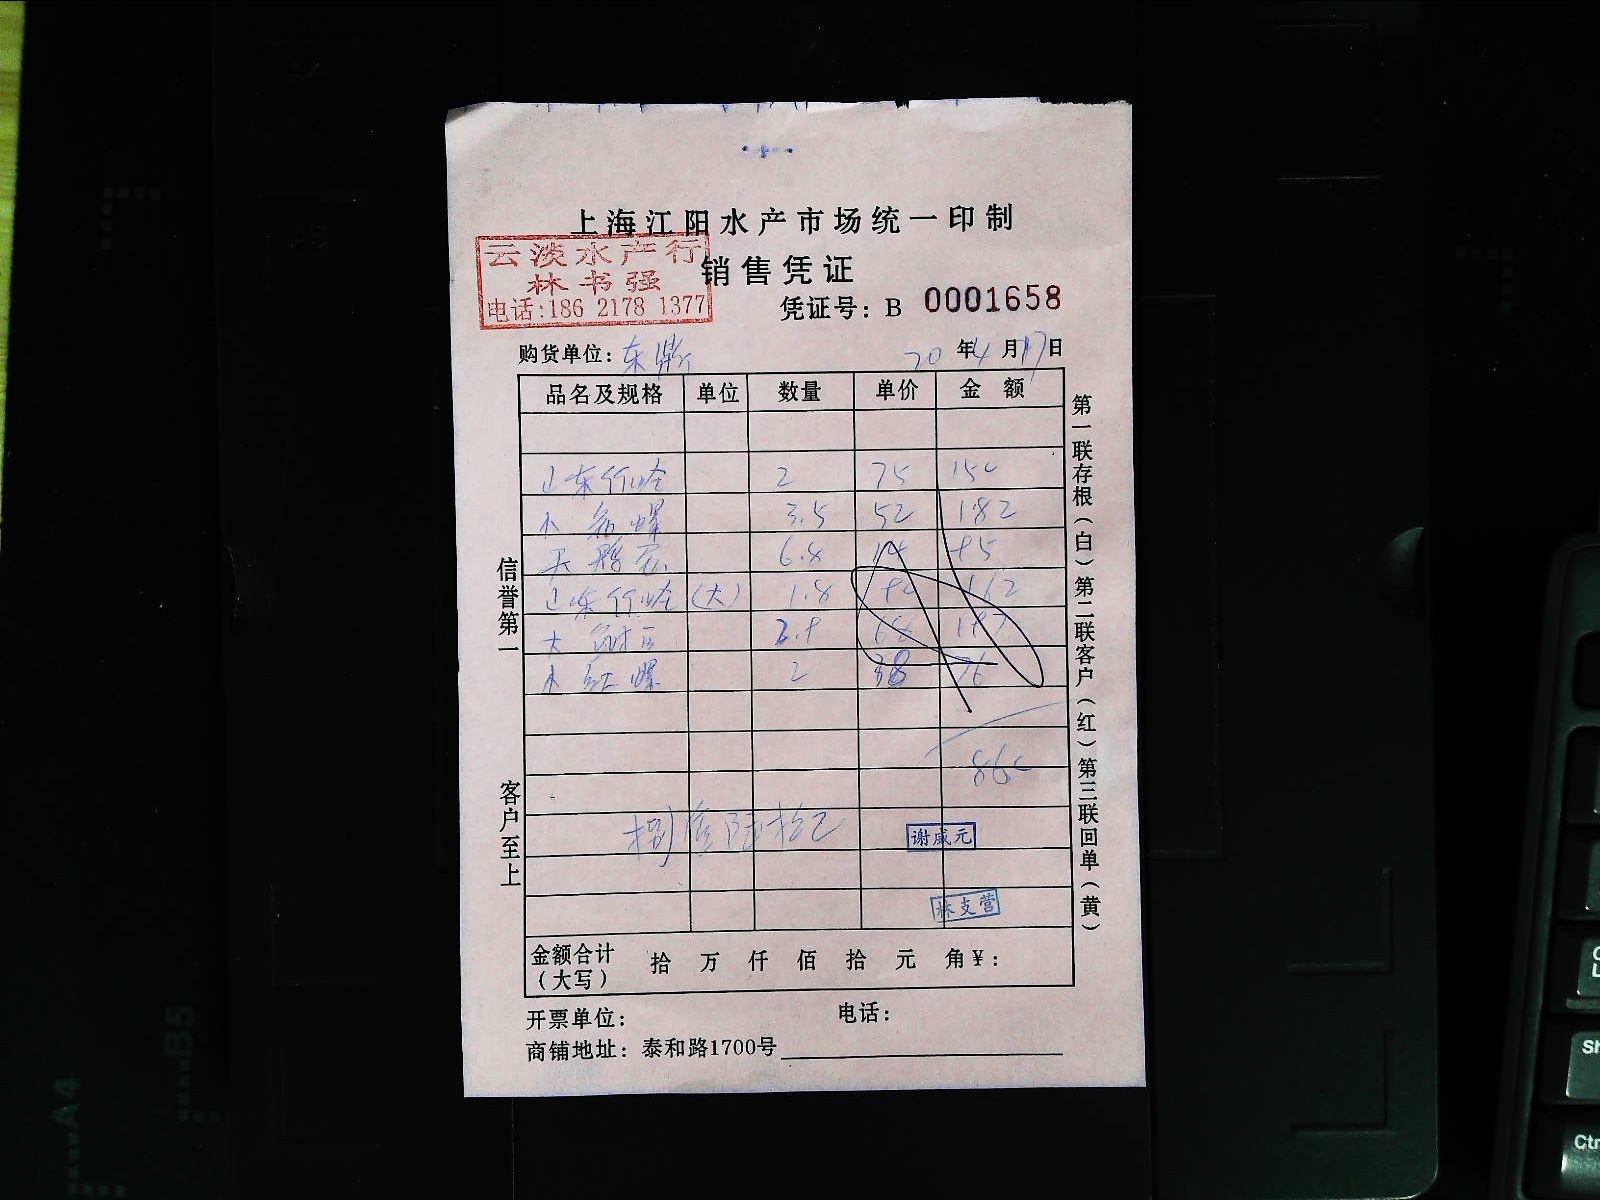 上海江阳水产市场统一印制
云淡水产行
林书强
电话:186 2178 1377
销售凭证
凭证号: B 0001658
购货单位: 东 20年4月17日
品名及规格 单位 数量 单价 金额
山东竹蛏 2 75 150
小 螺 3.5 52 182
6.8 14 95
山东竹蛏(大) 1.8 90 162
大 2.9 68 197
小红螺 2 38 76
860
捌佰陆拾元
谢咸元
林支营
金额合计(大写) 拾 万 仟 佰 拾 元 角¥:
开票单位: 电话:
商铺地址: 泰和路1700号
信誉第一
客户至上
第一联存根(白)第二联客户(红)第三联回单(黄)
A4
B5
Sh
Ctr